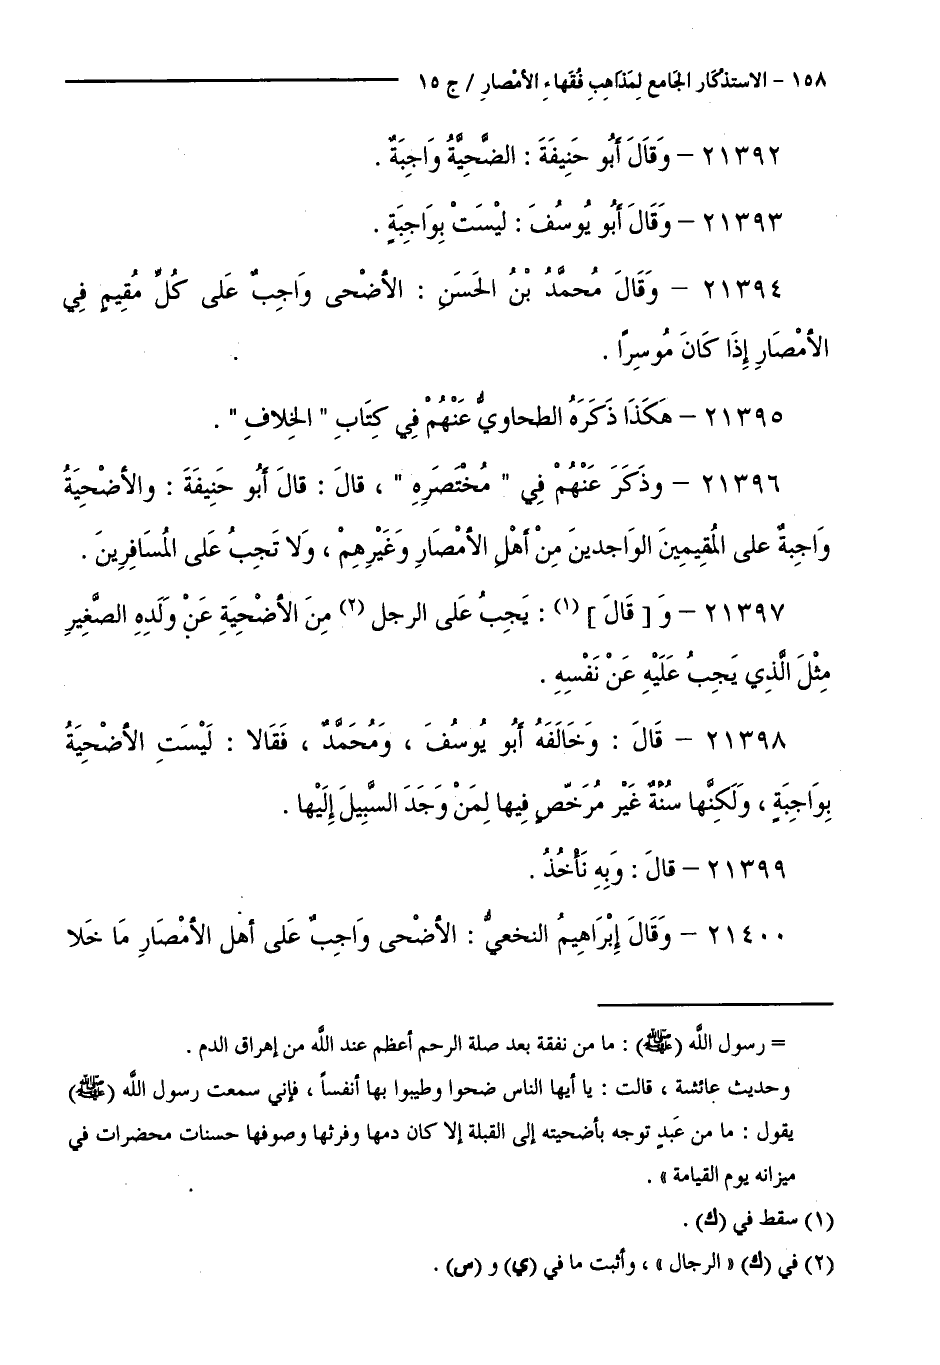 ١٥٨ - الاستذكار الجامع لِمَذاهِبِ فُقَهاءِ الأمْصارِ / ج ١٥
٢١٣٩٢ - وَقَالَ أَبُو حَنِيفَةَ : الضَّحِيَّةُ وَاجِبَةٌ .
٢١٣٩٣ - وَقَالَ أَبُو يُوسُفَ : لَيْسَتْ بِوَاجِبَةٍ .
٢١٣٩٤ - وَقَالَ مُحمَّدُ بْنُ الحَسَنِ : الأضْحى وَاجِبٌ عَلى كُلِّ مُقِيمٍ فِي
الأمْصَارِ إِذَا كَانَ مُوسِرًا .
٢١٣٩٥ - هَكَذَا ذَكَرَهُ الطحاويُّ عَنْهُمْ فِي كِتَابِ " الخِلافِ " .
٢١٣٩٦ - وذَكَرَ عَنْهُمْ فِي " مُخْتَصَرِهِ " ، قالَ : قالَ أَبُو حَنِيفَةَ : والأضْحِيَةُ
وَاجِبَةٌ على المُقِيمِينَ الوَاجدينَ مِنْ أهْلِ الأمْصَارِ وَغَيْرِهِمْ ، وَلا تَجبُ عَلى المُسَافِرِينَ .
٢١٣٩٧ - وَ [ قَالَ ] (١) : يَجِبُ عَلى الرجل (٢) مِنَ الأضْحِيَةِ عَنْ وَلَدِهِ الصَّغِيرِ
مِثْلَ الَّذِي يَجِبُ عَلَيْهِ عَنْ نَفْسِهِ .
٢١٣٩٨ - قَالَ : وَخَالَفَهُ أَبُو يُوسُفَ ، وَمُحَمَّدٌ ، فَقَالا : لَيْسَتِ الأضْحيَةُ
بِوَاجِبَةٍ ، وَلَكِنَّها سُنَّةٌ غَيْر مُرَخّصٍ فِيها لِمَنْ وَجَدَ السَّبِيلَ إِلَيْها .
٢١٣٩٩ - قالَ : وَبِهِ نَأْخُذُ .
٢١٤٠٠ - وَقَالَ إِبْرَاهِيمُ النخعيُّ : الأضْحى وَاجِبٌ عَلى أهل الأمْصَارِ مَا خَلا
= رسول اللَّه (ﷺ) : ما من نفقة بعد صلة الرحم أعظم عند اللَّه من إهراق الدم .
وحديث عائشة ، قالت : يا أيها الناس ضحوا وطيبوا بها أنفساً ، فإني سمعت رسول اللَّه (ﷺ)
يقول : ما من عَبدٍ توجه بأضحيته إلى القبلة إلا كان دمها وفرثها وصوفها حسنات محضرات في
ميزانه يوم القيامة » .
(١) سقط في (ك) .
(٢) في (ك) « الرجال » ، وأثبت ما في (ي) و (س) .